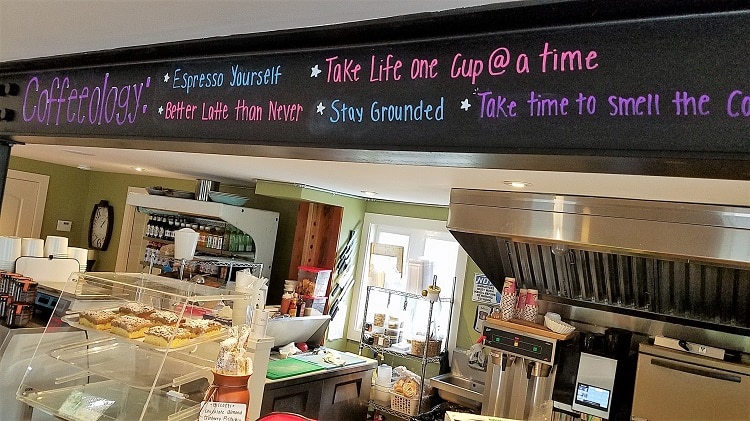 Coffeeology: * Espresso Yourself * Take Life one Cup @ a time
* Better Latte than Never * Stay Grounded * Take time to smell the Co